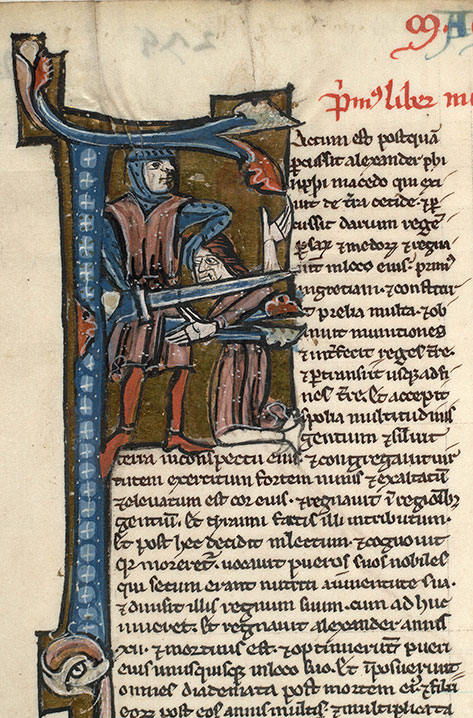 Pͥmꝰ liber m
FActum est postquā
ꝑcussit alexander phi
lippi macedo qui exi
uit de tr̄a cetide · ⁊ ꝑ
cussit darium regē
ꝑsaꝝ ⁊ medoꝝ ⁊ regna
uit in loco eius · primꝰ
in gretiam · ⁊ constitu
it prelia multa · ⁊ ob
tinuit munitiones
⁊ int̄fecit reges tr̄e ·
⁊ ꝑtransiit usqꝫ ad fi
nes tr̄e. Et accepit
spolia multitudinis
gentium ⁊ siluit
terra in conspectu eiꝰ · ⁊ congregauit uir
tutem exercitum fortem nimis ⁊ exaltatū
⁊ eleuatum est cor eius · ⁊ regnauit ī regionibꝫ
gentiū. Et tiranni illi in tributum.
Et post hec decidit in lectum ⁊ cognouit
qꝛ moreret᷑. uocauit pueros suos nobiles
qui secum erant nutriti a iuuentute sua ·
⁊ diuisit illis regnum suum · cum ad huc
uiueret. Et regnauit alexander annis
xii · ⁊ mortuus est · ⁊ optinuerūt pueri
eius unusquisqꝫ in loco suo. Et īposuerunt
omnes diademata post mortem eiꝰ ⁊ filii
eoꝝ post eos annis multis · ⁊ multiplicata